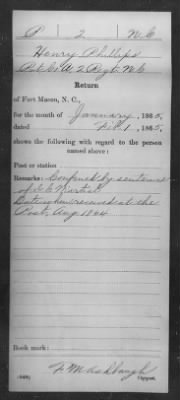 P 2 N.C.
Henry Phillips
Pvt Co. A 2 Regt N.C.
Return
of Fort Macon, N. C.,
for the month of January, 1865,
dated Feb. 1, 1865,
shows the following with regard to the person
named above:
Post or station
Remarks: Confined by sentence
of G. C. Martial
Date when received at the
Post, Aug 1864
Book mark:
F. M. Ashbaugh
Copyist.